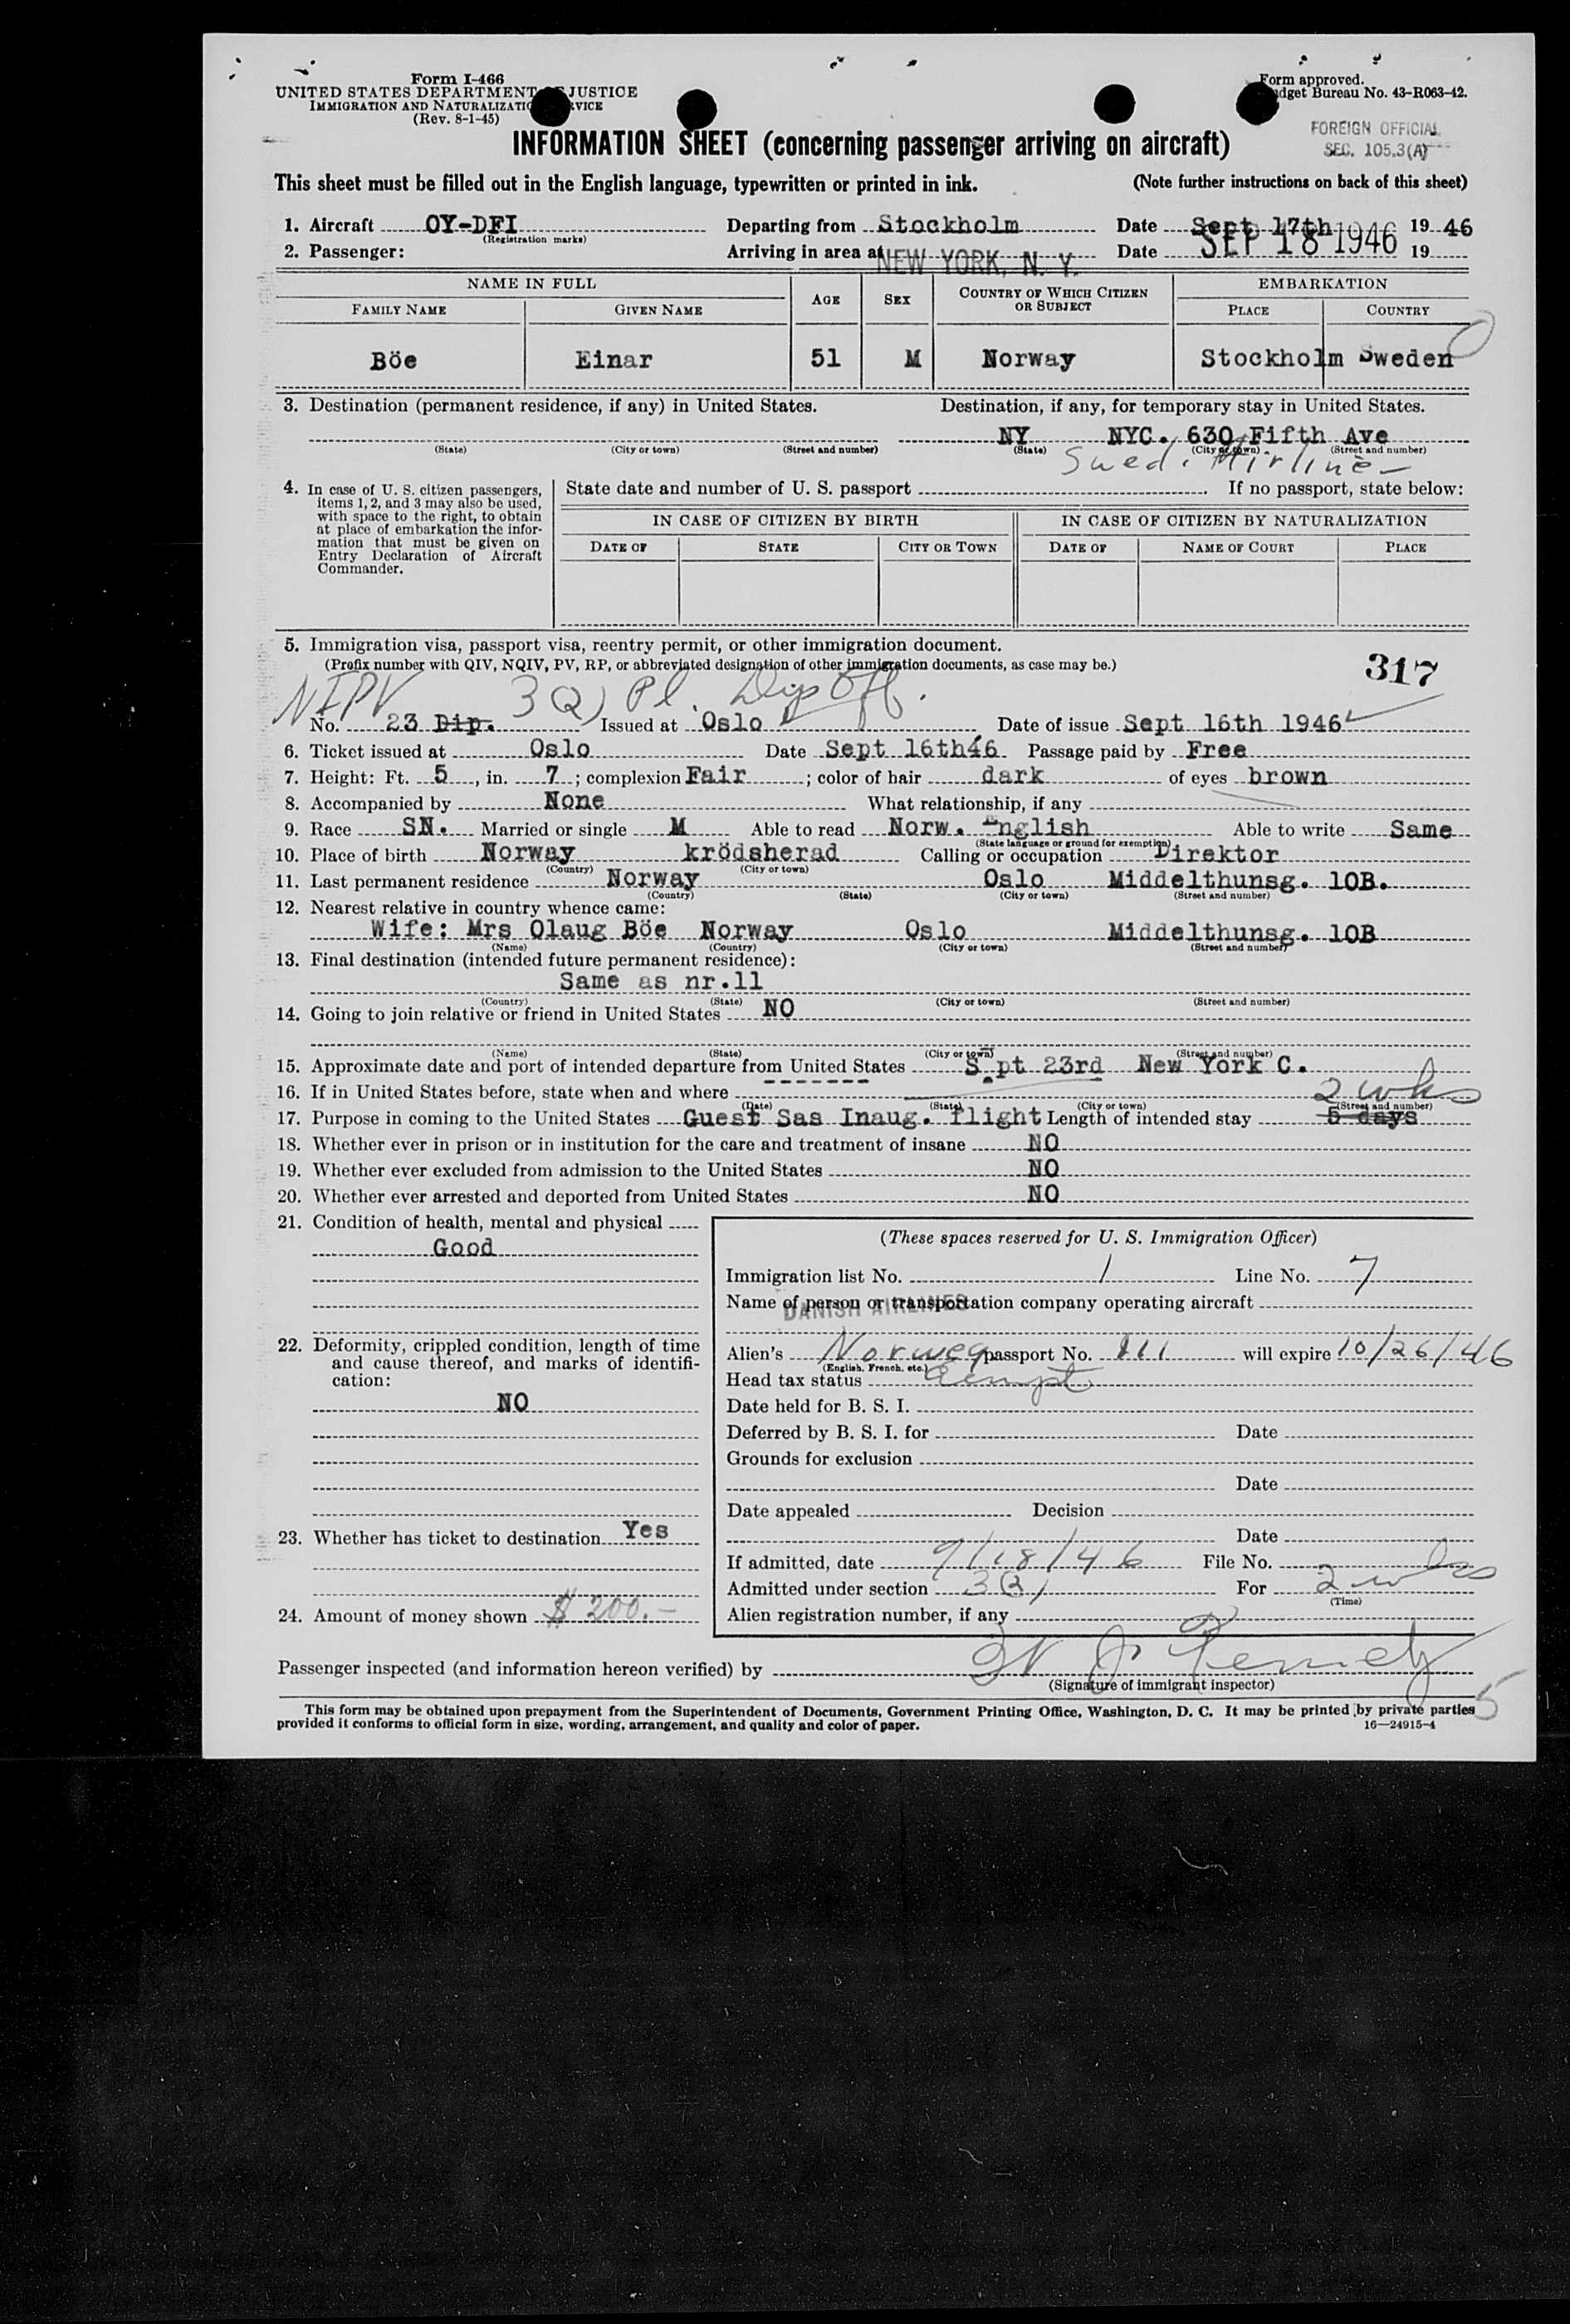 Form I-466
UNITED STATES DEPARTMENT JUSTICE
IMMIGRATION AND
(Rev. 8-1-45)
Form approved.
Bureau No. 43-R063-42.
FOREIGN OFFICIAL
SEC. 105.3(A)
INFORMATION SHEET (concerning passenger arriving on aircraft)
This sheet must be filled out in the English language, typewritten or printed in ink. (Note further instructions on back of this sheet)
1. Aircraft OY-DFI Departing from Stockholm Date Sept 17th 19 46
(Registration marks)
2. Passenger: Arriving in area at NEW YORK, N. Y. Date SEP 18 1946 19
NAME IN FULL AGE SEX COUNTRY OF WHICH CITIZEN OR SUBJECT EMBARKATION
FAMILY NAME GIVEN NAME PLACE COUNTRY
Böe Einar 51 M Norway Stockholm Sweden
3. Destination (permanent residence, if any) in United States. Destination, if any, for temporary stay in United States.
NY NYC. 630 Fifth Ave
(State) (City or town) (Street and number) (State) (City or town) (Street and number)
Swed. Airline
4. In case of U. S. citizen passengers, items 1, 2, and 3 may also be used, with space to the right, to obtain at place of embarkation the information that must be given on Entry Declaration of Aircraft Commander.
State date and number of U. S. passport . If no passport, state below:
IN CASE OF CITIZEN BY BIRTH IN CASE OF CITIZEN BY NATURALIZATION
DATE OF STATE CITY OR TOWN DATE OF NAME OF COURT PLACE
5. Immigration visa, passport visa, reentry permit, or other immigration document.
(Prefix number with QIV, NQIV, PV, RP, or abbreviated designation of other immigration documents, as case may be.)
317
NIPV 3(2) Pl. Dip Off.
No. 23 Dip. Issued at Oslo Date of issue Sept 16th 1946
6. Ticket issued at Oslo Date Sept 16th46 Passage paid by Free
7. Height: Ft. 5, in. 7; complexion Fair; color of hair dark of eyes brown
8. Accompanied by None What relationship, if any
9. Race SN. Married or single M Able to read Norw. English Able to write Same
(State language or ground for exemption)
10. Place of birth Norway krödsherad Calling or occupation Direktor
(Country) (City or town)
11. Last permanent residence Norway Oslo Middelthunsg. 10B.
(Country) (State) (City or town) (Street and number)
12. Nearest relative in country whence came:
Wife: Mrs Olaug Böe Norway Oslo Middelthunsg. 10B
(Name) (Country) (City or town) (Street and number)
13. Final destination (intended future permanent residence):
Same as nr.11
(Country) (State) (City or town) (Street and number)
14. Going to join relative or friend in United States NO
(Name) (State) (City or town) (Street and number)
15. Approximate date and port of intended departure from United States S pt 23rd New York C.
16. If in United States before, state when and where
(Date) (State) (City or town) (Street and number)
2 wks
17. Purpose in coming to the United States Guest Sas Inaug. flight Length of intended stay 5 days
18. Whether ever in prison or in institution for the care and treatment of insane NO
19. Whether ever excluded from admission to the United States NO
20. Whether ever arrested and deported from United States NO
21. Condition of health, mental and physical
Good
22. Deformity, crippled condition, length of time and cause thereof, and marks of identification:
NO
23. Whether has ticket to destination Yes
24. Amount of money shown $ 200.—
(These spaces reserved for U. S. Immigration Officer)
Immigration list No. 1 Line No. 7
Name of person or transportation company operating aircraft
DANISH AIRLINES
Alien's Norweg passport No. 111 will expire 10/26/46
(English, French, etc.)
Head tax status Exempt
Date held for B. S. I.
Deferred by B. S. I. for Date
Grounds for exclusion
Date
Date appealed Decision
Date
If admitted, date 9/18/46 File No.
Admitted under section 3(2) For 2 wks
(Time)
Alien registration number, if any
Passenger inspected (and information hereon verified) by
(Signature of immigrant inspector)
5
This form may be obtained upon prepayment from the Superintendent of Documents, Government Printing Office, Washington, D. C. It may be printed by private parties
provided it conforms to official form in size, wording, arrangement, and quality and color of paper. 16—24915-4